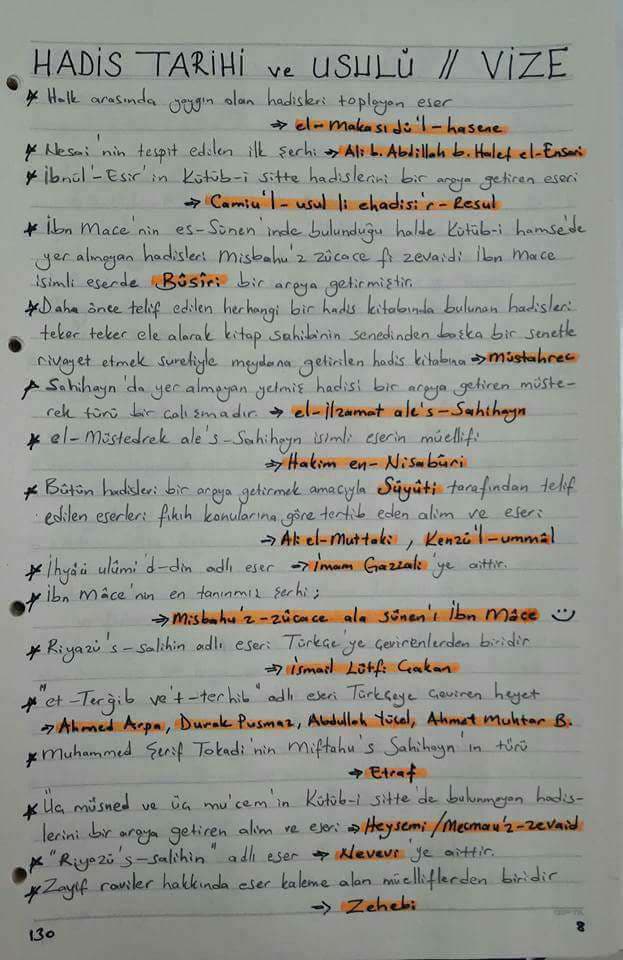 HADİS TARİHİ ve USULÜ // VİZE
* Halk arasında yaygın olan hadisleri toplayan eser
→ el-makasıdü'l-hasene
* Nesai'nin tespit edilen ilk şerhi → Ali b. Abdillah b. Halef el-Ensari
* İbnül'-Esir'in Kütüb-i sitte hadislerini bir araya getiren eseri
→ Camiu'l-usul li ehadisi'r-Resul
* İbn Mace'nin es-Sünen'inde bulunduğu halde Kütüb-i hamse'de
yer almayan hadisleri Misbahu'z zücace fi zevaidi İbn Mace
isimli eserde Bûsîrî bir araya getirmiştir.
* Daha önce telif edilen herhangi bir hadis kitabında bulunan hadisleri
teker teker ele alarak kitap sahibinin senedinden başka bir senetle
rivayet etmek suretiyle meydana getirilen hadis kitabına → müstahrec
* Sahihayn'da yer almayan yetmiş hadisi bir araya getiren müste-
rek türü bir çalışmadır. → el-ilzamat ale's-Sahihayn
* el-Müstedrek ale's-Sahihayn isimli eserin müellifi
→ Hakim en-Nisabûri
* Bütün hadisleri bir araya getirmek amacıyla Süyûti tarafından telif
edilen eserleri fıkıh konularına göre tertib eden alim ve eseri
→ Ali el-Muttaki, Kenzü'l-ummâl
* İhyâü ulûmi'd-din adlı eser → İmam Gazzali'ye aittir.
* İbn Mâce'nin en tanınmış şerhi;
→ Misbahu'z-zücace ala sünen'i İbn Mâce ☺
* Riyazü's-salihin adlı eseri Türkçe'ye çevirenlerden biridir
→ İsmail Lütfi Çakan
* "et-Terğib ve't-terhib" adlı eseri Türkçeye çeviren heyet
→ Ahmed Arpa, Durak Pusmaz, Abdullah Yücel, Ahmet Muhtar B.
* Muhammed Şerif Tokadi'nin Miftahu's Sahihayn'ın türü
→ Etraf
* Üç müsned ve üç mu'cem'in Kütüb-i sitte'de bulunmayan hadis-
lerini bir araya getiren alim ve eseri → Heysemi/Mecmau'z-zevaid
* "Riyazü's-salihin" adlı eser → Nevevi'ye aittir.
* Zayıf raviler hakkında eser kaleme alan müelliflerden biridir
→ Zehebi
130 8